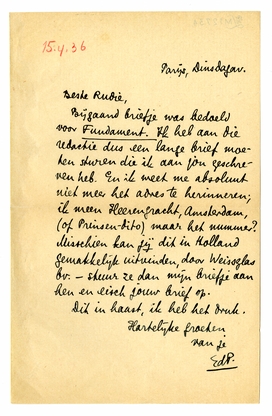 15.4.36
Parijs, Dinsdagav.
Beste Rudie,
Bijgaand briefje was bedoeld
voor Fundament. Ik heb aan die
redactie dus een lange brief moe-
ten sturen die ik aan jou geschre-
ven heb. En ik weet me absoluut
niet meer het adres te herinneren;
ik meen Heerengracht, Amsterdam,
(of Prinsen-dito) maar het nummer?
Misschien kan jij dit in Holland
gemakkelijk uitvinden, door Weissglas
bv. — stuur ze dan mijn briefje aan
hen en eisch jouw brief op.
Dit in haast, ik heb het druk.
Hartelijke groeten
van je
EdP.